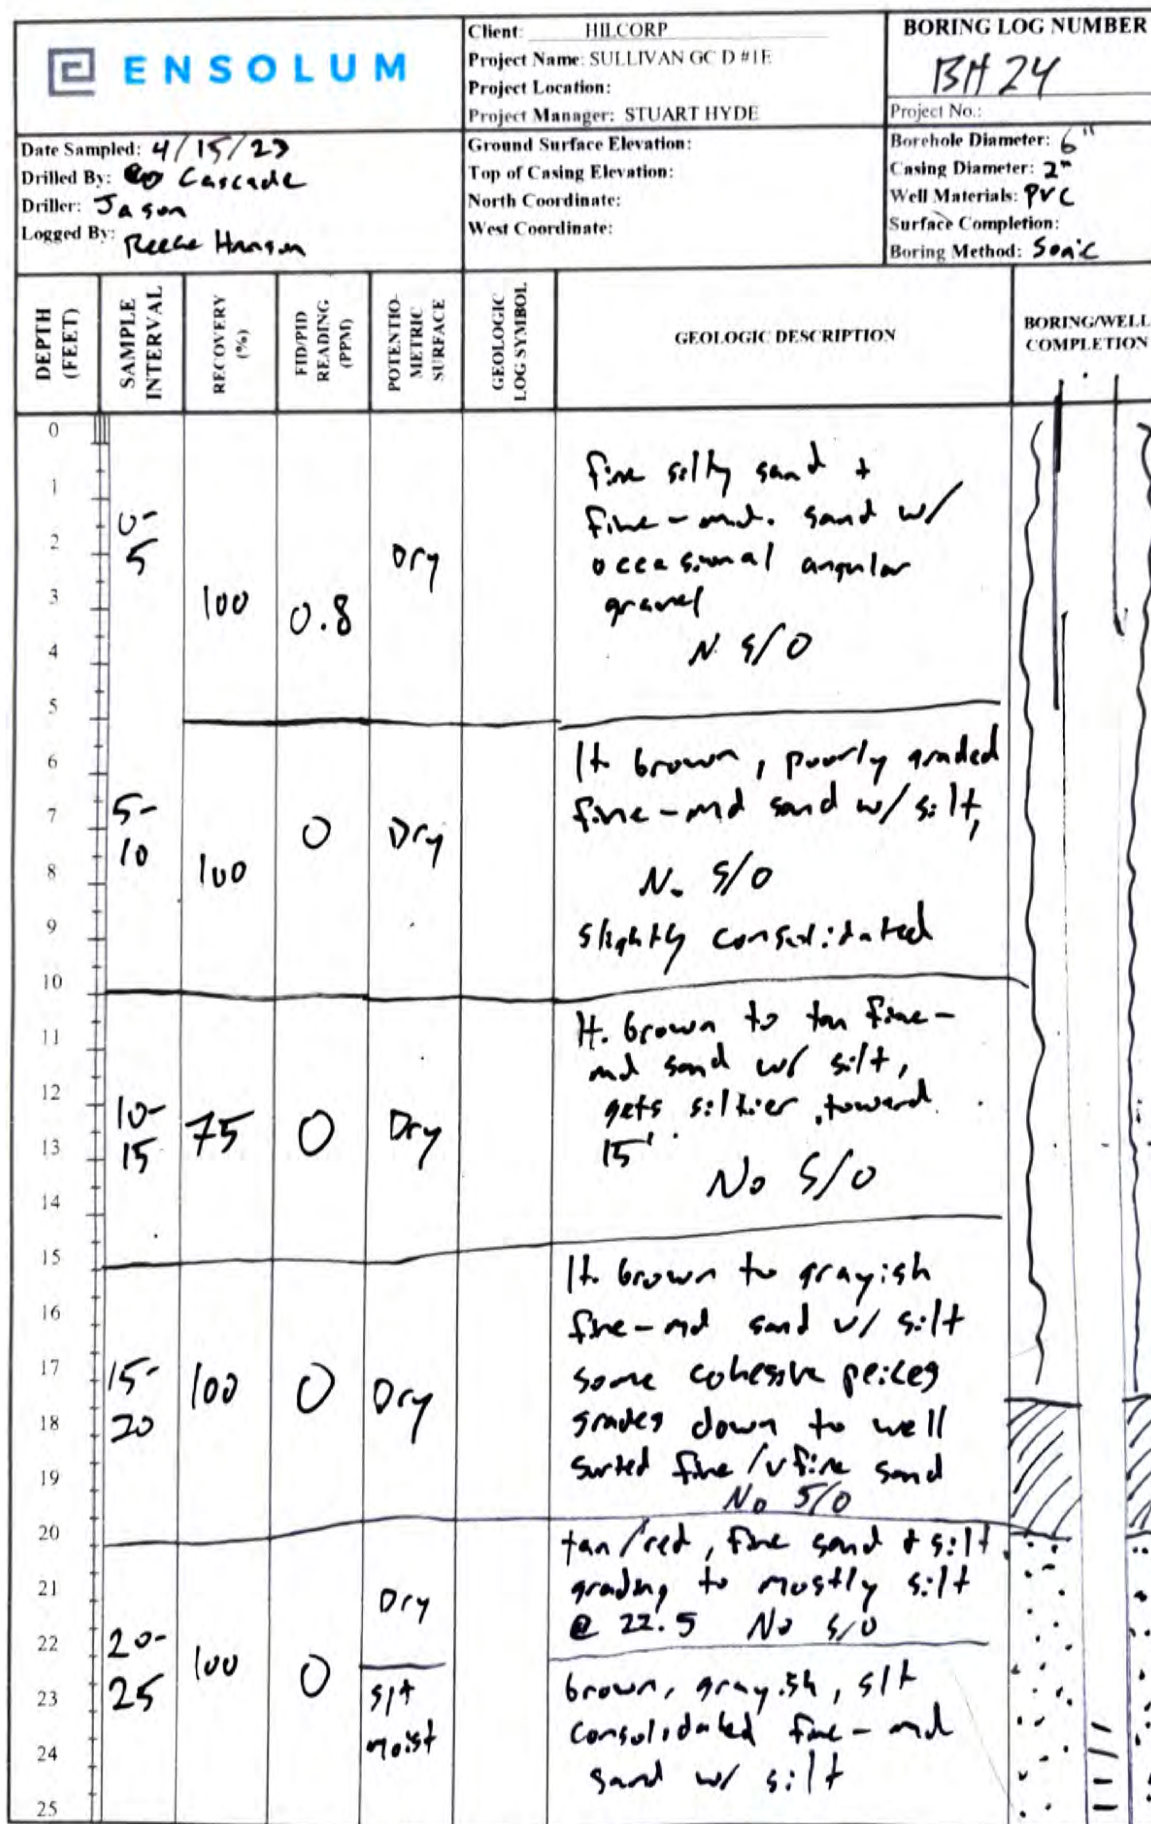 ENSOLUM
Client: HILCORP
Project Name: SULLIVAN GC D #1E
Project Location:
Project Manager: STUART HYDE
BORING LOG NUMBER
BH 24
Project No.:
Date Sampled: 4/15/23
Drilled By: Cascade
Driller: Jason
Logged By: Reece Hanson
Ground Surface Elevation:
Top of Casing Elevation:
North Coordinate:
West Coordinate:
Borehole Diameter: 6"
Casing Diameter: 2"
Well Materials: PVC
Surface Completion:
Boring Method: Sonic
DEPTH (FEET)
SAMPLE INTERVAL
RECOVERY (%)
FID/PID READING (PPM)
POTENTIO-METRIC SURFACE
GEOLOGIC LOG SYMBOL
GEOLOGIC DESCRIPTION
BORING/WELL COMPLETION
0
1
2
3
4
5
6
7
8
9
10
11
12
13
14
15
16
17
18
19
20
21
22
23
24
25
0-
5
100
0.8
Dry
fine silty sand +
fine-md. sand w/
occasional angular
gravel
N. S/O
5-
10
100
0
Dry
lt brown, poorly graded
fine-md sand w/ silt,
No S/O
slightly consolidated
10-
15
75
0
Dry
lt. brown to tan fine-
md sand w/ silt,
gets siltier toward
15'
No S/O
15-
20
100
0
Dry
lt. brown to grayish
fine-md sand w/ silt
some cohesive peices
grades down to well
sorted fine/v fine sand
No S/O
20-
25
100
0
Dry
slt
moist
tan/red, fine sand + silt
grading to mostly silt
@ 22.5 No S/O
brown, grayish, slt
consolidated fine-md
sand w/ silt